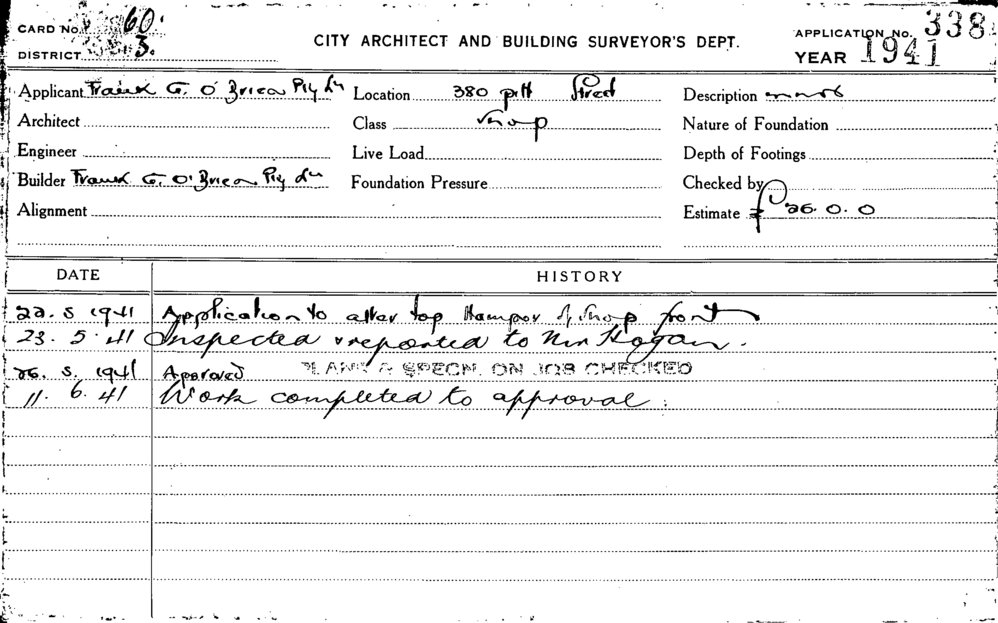 CARD No. 60.
CITY ARCHITECT AND BUILDING SURVEYOR'S DEPT.
APPLICATION No. 338
DISTRICT 3.
YEAR 1941
Applicant Frank G. O'Brien Pty Ltd Location 380 pitt Street Description
Architect Class Shop Nature of Foundation
Engineer Live Load Depth of Footings
Builder Frank G. O'Brien Pty Ltd Foundation Pressure Checked by
Alignment Estimate £ 26. 0. 0
DATE HISTORY
22. 5 1941 Application to alter top Hamper of Shop front
23. 5. 41 Inspected & reported to Mr Hogan.
26. 5. 1941 Approved PLANS & SPECN. ON JOB CHECKED
11. 6. 41 Work completed to approval.